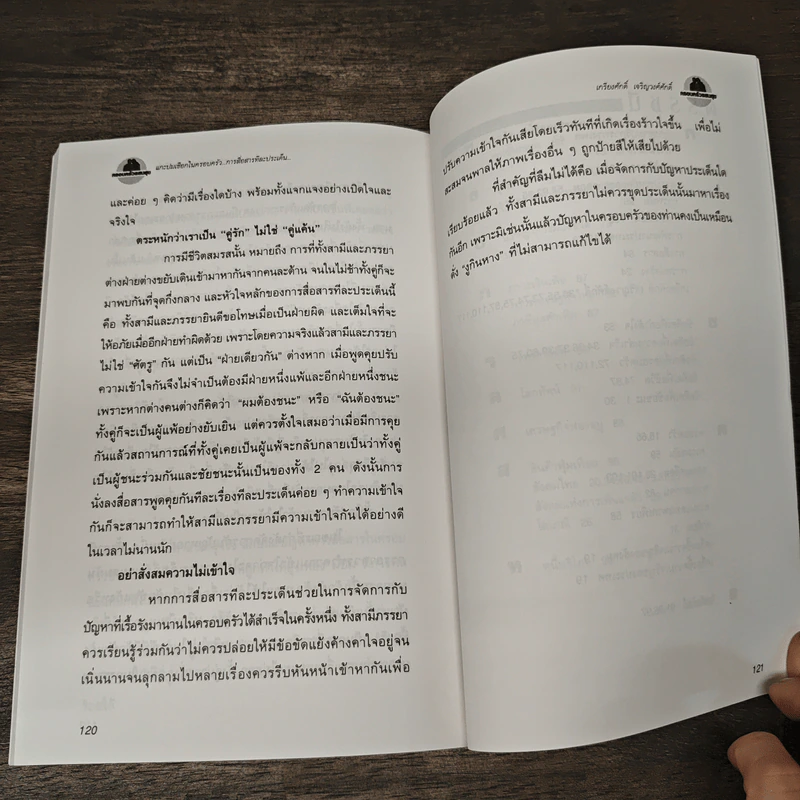 แกะปมเชือกในครอบครัว...การสื่อสารทีละประเด็น...
และค่อย ๆ คิดว่ามีเรื่องใดบ้าง พร้อมทั้งแจกแจงอย่างเปิดใจและ
จริงใจ
ตระหนักว่าเราเป็น “คู่รัก” ไม่ใช่ “คู่แค้น”
การมีชีวิตสมรสนั้น หมายถึง การที่ทั้งสามีและภรรยา
ต่างฝ่ายต่างขยับเดินเข้ามาหากันจากคนละด้าน จนในไม่ช้าทั้งคู่ก็จะ
มาพบกันที่จุดกึ่งกลาง และหัวใจหลักของการสื่อสารทีละประเด็นนี้
คือ ทั้งสามีและภรรยายินดีขอโทษเมื่อเป็นฝ่ายผิด และเต็มใจที่จะ
ให้อภัยเมื่ออีกฝ่ายทำผิดด้วย เพราะโดยความจริงแล้วสามีและภรรยา
ไม่ใช่ “ศัตรู” กัน แต่เป็น “ฝ่ายเดียวกัน” ต่างหาก เมื่อพูดคุยปรับ
ความเข้าใจกันจึงไม่จำเป็นต้องมีฝ่ายหนึ่งแพ้และอีกฝ่ายหนึ่งชนะ
เพราะหากต่างคนต่างก็คิดว่า “ผมต้องชนะ” หรือ “ฉันต้องชนะ”
ทั้งคู่ก็จะเป็นผู้แพ้อย่างยับเยิน แต่ควรตั้งใจเสมอว่าเมื่อมีการคุย
กันแล้วสถานการณ์ที่ทั้งคู่เคยเป็นผู้แพ้จะกลับกลายเป็นว่าทั้งคู่
เป็นผู้ชนะร่วมกันและชัยชนะนั้นเป็นของทั้ง 2 คน ดังนั้นการ
นั่งลงสื่อสารพูดคุยกันทีละเรื่องทีละประเด็นค่อย ๆ ทำความเข้าใจ
กันก็จะสามารถทำให้สามีและภรรยามีความเข้าใจกันได้อย่างดี
ในเวลาไม่นานนัก
อย่าสั่งสมความไม่เข้าใจ
หากการสื่อสารทีละประเด็นช่วยในการจัดการกับ
ปัญหาที่เรื้อรังมานานในครอบครัวได้สำเร็จในครั้งหนึ่ง ทั้งสามีภรรยา
ควรเรียนรู้ร่วมกันว่าไม่ควรปล่อยให้มีข้อขัดแย้งค้างคาใจอยู่จน
เนิ่นนานจนลุกลามไปหลายเรื่องควรรีบหันหน้าเข้าหากันเพื่อ
120
เกรียงศักดิ์ เจริญวงศ์ศักดิ์
ปรับความเข้าใจกันเสียโดยเร็วทันทีที่เกิดเรื่องร้าวใจขึ้น เพื่อไม่
สะสมจนพาลให้ภาพเรื่องอื่น ๆ ถูกป้ายสีให้เสียไปด้วย
ที่สำคัญที่ลืมไม่ได้คือ เมื่อจัดการกับปัญหาประเด็นใด
เรียบร้อยแล้ว ทั้งสามีและภรรยาไม่ควรขุดประเด็นนั้นมาหาเรื่อง
กันอีก เพราะมิเช่นนั้นแล้วปัญหาในครอบครัวของท่านคงเป็นเหมือน
ดั่ง “งูกินหาง” ที่ไม่สามารถแก้ไขได้
121